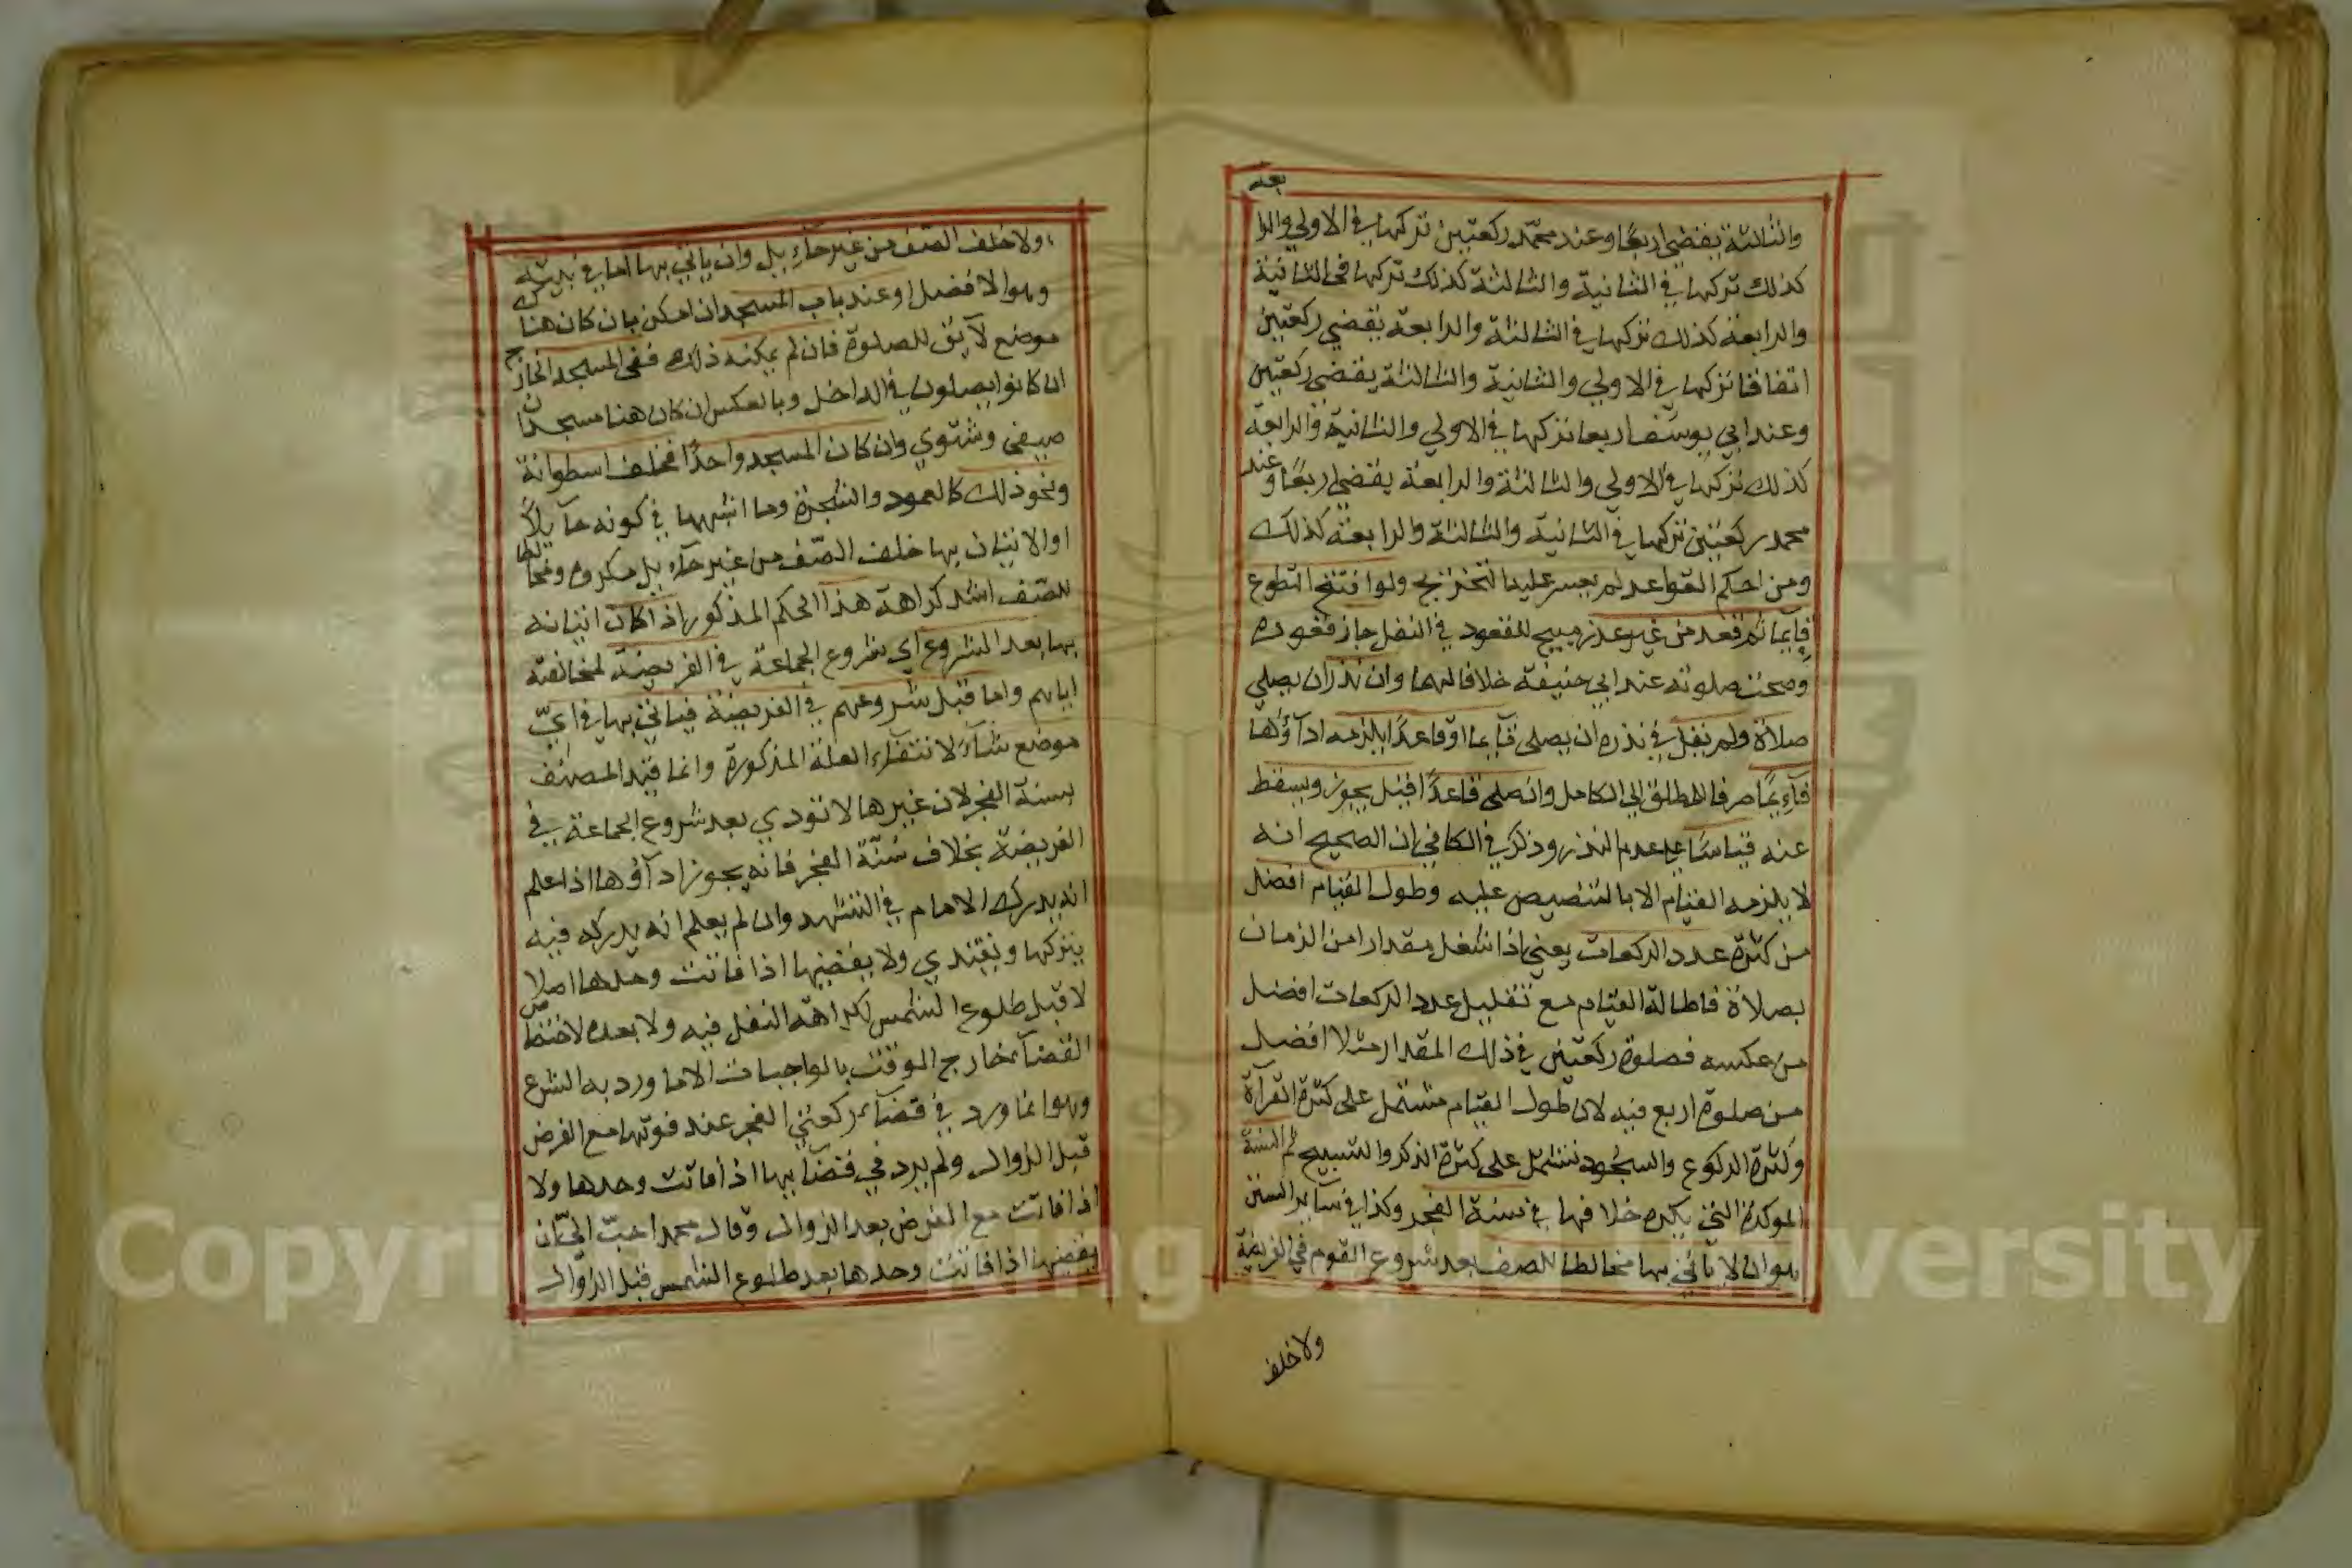 والثالثة يقضي اربعًا وعند محمّد ركعتين تركها في الاولي والرا
بعة
كذلك تركها في الثانية والثالثة كذلك تركها في الثانية
والرابعة كذلك تركها في الثالثة والرابعة يقضي ركعتين
اتفاقا تركها في الاولي والثانية والثالثة يقضي ركعتين
وعند ابي يوسف اربعا تركها في الاولي والثانية والرابعة
كذلك تركها في الاولي والثالثة والرابعة يقضي اربعًا وعند
محمد ركعتين تركها في الثانية والثالثة والرابعة كذلك
ومن احكم القواعد لم يعسر عليه التخريج ولو افتتح التطوع
قايما ثم قعد من غير عذر مبيح للقعود في النفل جاز قعوده
وصحت صلوته عند ابي حنيفة خلافا لهما وان نذر ان يصلي
صلاة ولم يقل في نذره ان يصلي قايما او قاعدًا يلزمه اداؤها
قآيمًا صرفا للمطلق الي الكامل وان صلي قاعدًا قيل يجوز ويسقط
عنه قياسًا علي عدم النذر وذكر في الكافي ان الصحيح انه
لا يلزمه القيام الا بالتنصيص عليه وطول القيام افضل
من كثرة عدد الركعات يعني اذا شغل مقدارا من الزمان
بصلاة فاطالة القيام مع تقليل عدد الركعات افضل
من عكسه فصلوة ركعتين في ذلك المقدار مثلا افضل
من صلوة اربع فيه لان طول القيام مشتمل على كثرة القرآة
وكثرة الركوع والسجود تشتمل على كثرة الذكر والتسبيح ثم السنة
الموكدة التي يكره خلافها في سنة الفجر وكذا في سآير السنن
هو ان لا ياتي بها مخالطا للصف بعد شروع القوم في الفريضة
ولا خلف
ولا خلف الصّف من غير حآيل وان ياتي بها اما في بيته
وهو الافضل او عند باب المسجد ان امكن بان كان هناك
موضع لآيق للصلوة فان لم يمكنه ذلك ففي المسجد الخارج
ان كانوا يصلون في الداخل وبالعكس ان كان هنا مسجدان
صيفي وشتوي وان كان المسجد واحدًا فخلف اسطوانة
ونحو ذلك كالعمود والشجرة وما اشبهها في كونه حآيلاً
او الاتيان بها خلف الصّف من غير حآيل مكروه ومخالطا
للصّف اشد كراهة هذا الحكم المذكور اذا كان اتيانه
بها بعد الشروع اي شروع الجماعة في الفريضة لمخالفته
اياهم واما قبل شروعهم في الفريضة فياتي بها في ايّ
موضع شآء لانتفآء العلة المذكورة وانما قيد المصنف
بسنة الفجر لان غيرها لا تودي بعد شروع الجماعة في
الفريضة بخلاف سنّة الفجر فانه يجوز ادآؤها اذا علم
انه يدرك الامام في التشهد وان لم يعلم انه يدركه فيه
يتركها ويقتدي ولا يقضيها اذا فاتت وحدها اصلا
لا قبل طلوع الشمس لكراهة النفل فيه ولا بعده لاختصاص
القضآء خارج الوقت بالواجبات الا ما ورد به الشرع
وهو انما ورد في قضآء ركعتي الفجر عند فوتها مع الفرض
قبل الزوال ولم يرد في قضآيها اذا فاتت وحدها ولا
اذا فاتت مع الفرض بعد الزوال وقال محمد احبّ اليّ ان
يقضيها اذا فاتت وحدها بعد طلوع الشمس قبل الزوال